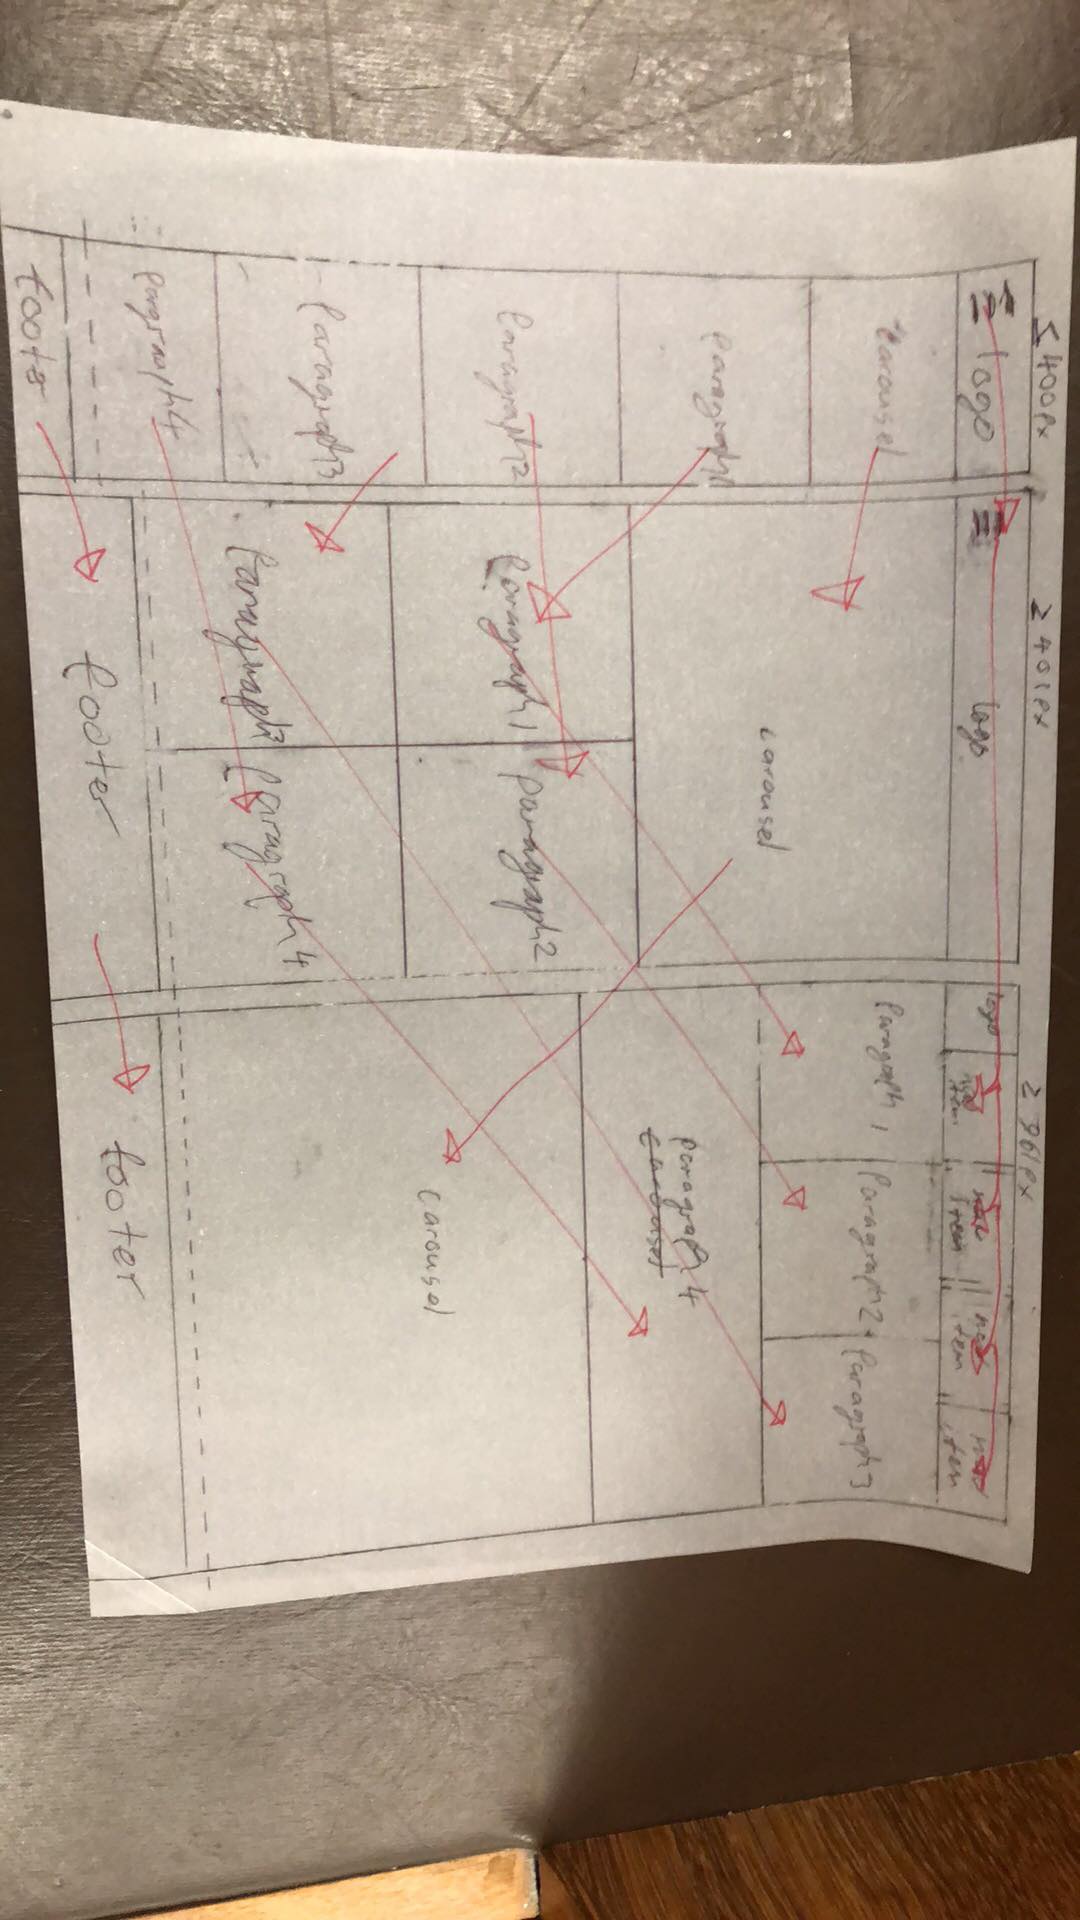 ≤400px
≡ logo
carousel
paragraph1
paragraph2
paragraph3
paragraph4
footer
≥ 401px
≡ logo
carousel
paragraph1 paragraph2
paragraph3 paragraph4
footer
≥ 961px
logo nav item nav item nav item nav item
paragraph 1 paragraph2 paragraph3
paragraph 4
carousel
carousel
footer